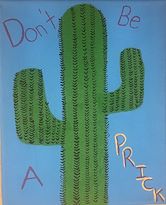 Don't Be
A PRICK